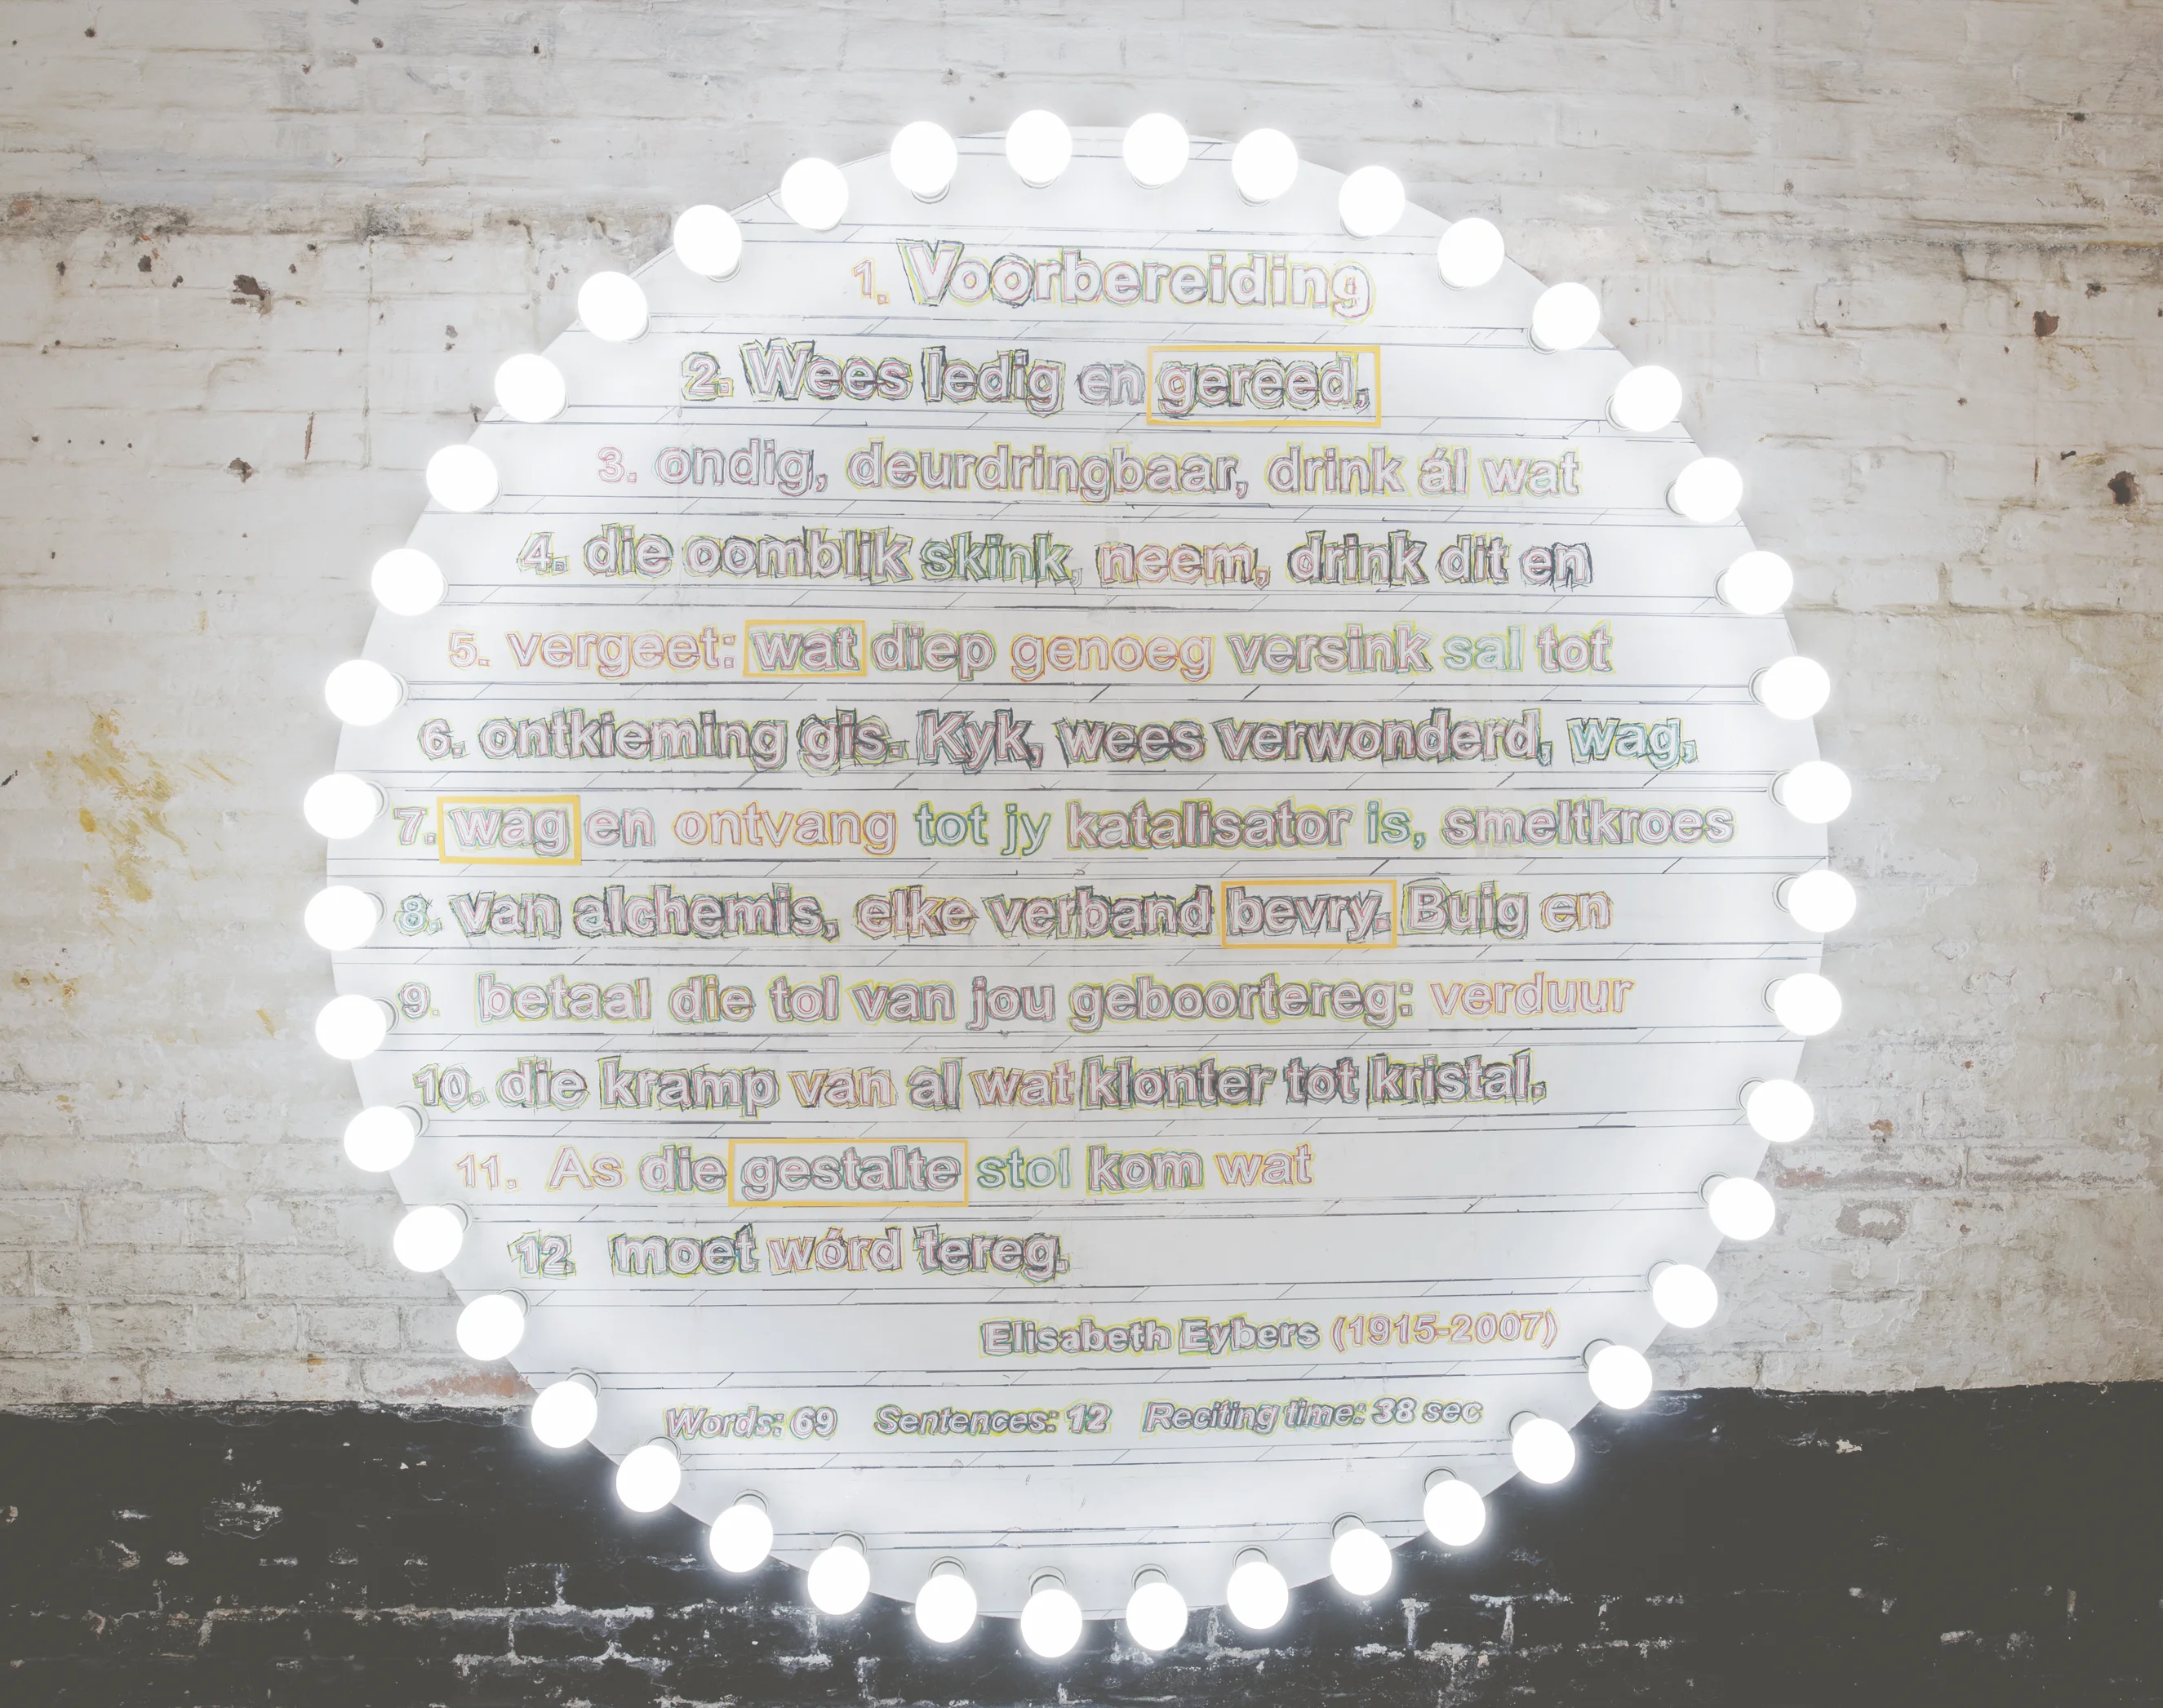 1. Voorbereiding
2. Wees ledig en gereed,
3. ondig, deurdringbaar, drink ál wat
4. die oomblik skink, neem, drink dit en
5. vergeet: wat diep genoeg versink sal tot
6. ontkieming gis. Kyk, wees verwonderd, wag,
7. wag en ontvang tot jy katalisator is, smeltkroes
8. van alchemis, elke verband bevry. Buig en
9. betaal die tol van jou geboortereg: verduur
10. die kramp van al wat klonter tot kristal.
11. As die gestalte stol kom wat
12 moet wórd tereg.
Elisabeth Eybers (1915-2007)
Words: 69 Sentences: 12 Reciting time: 38 sec